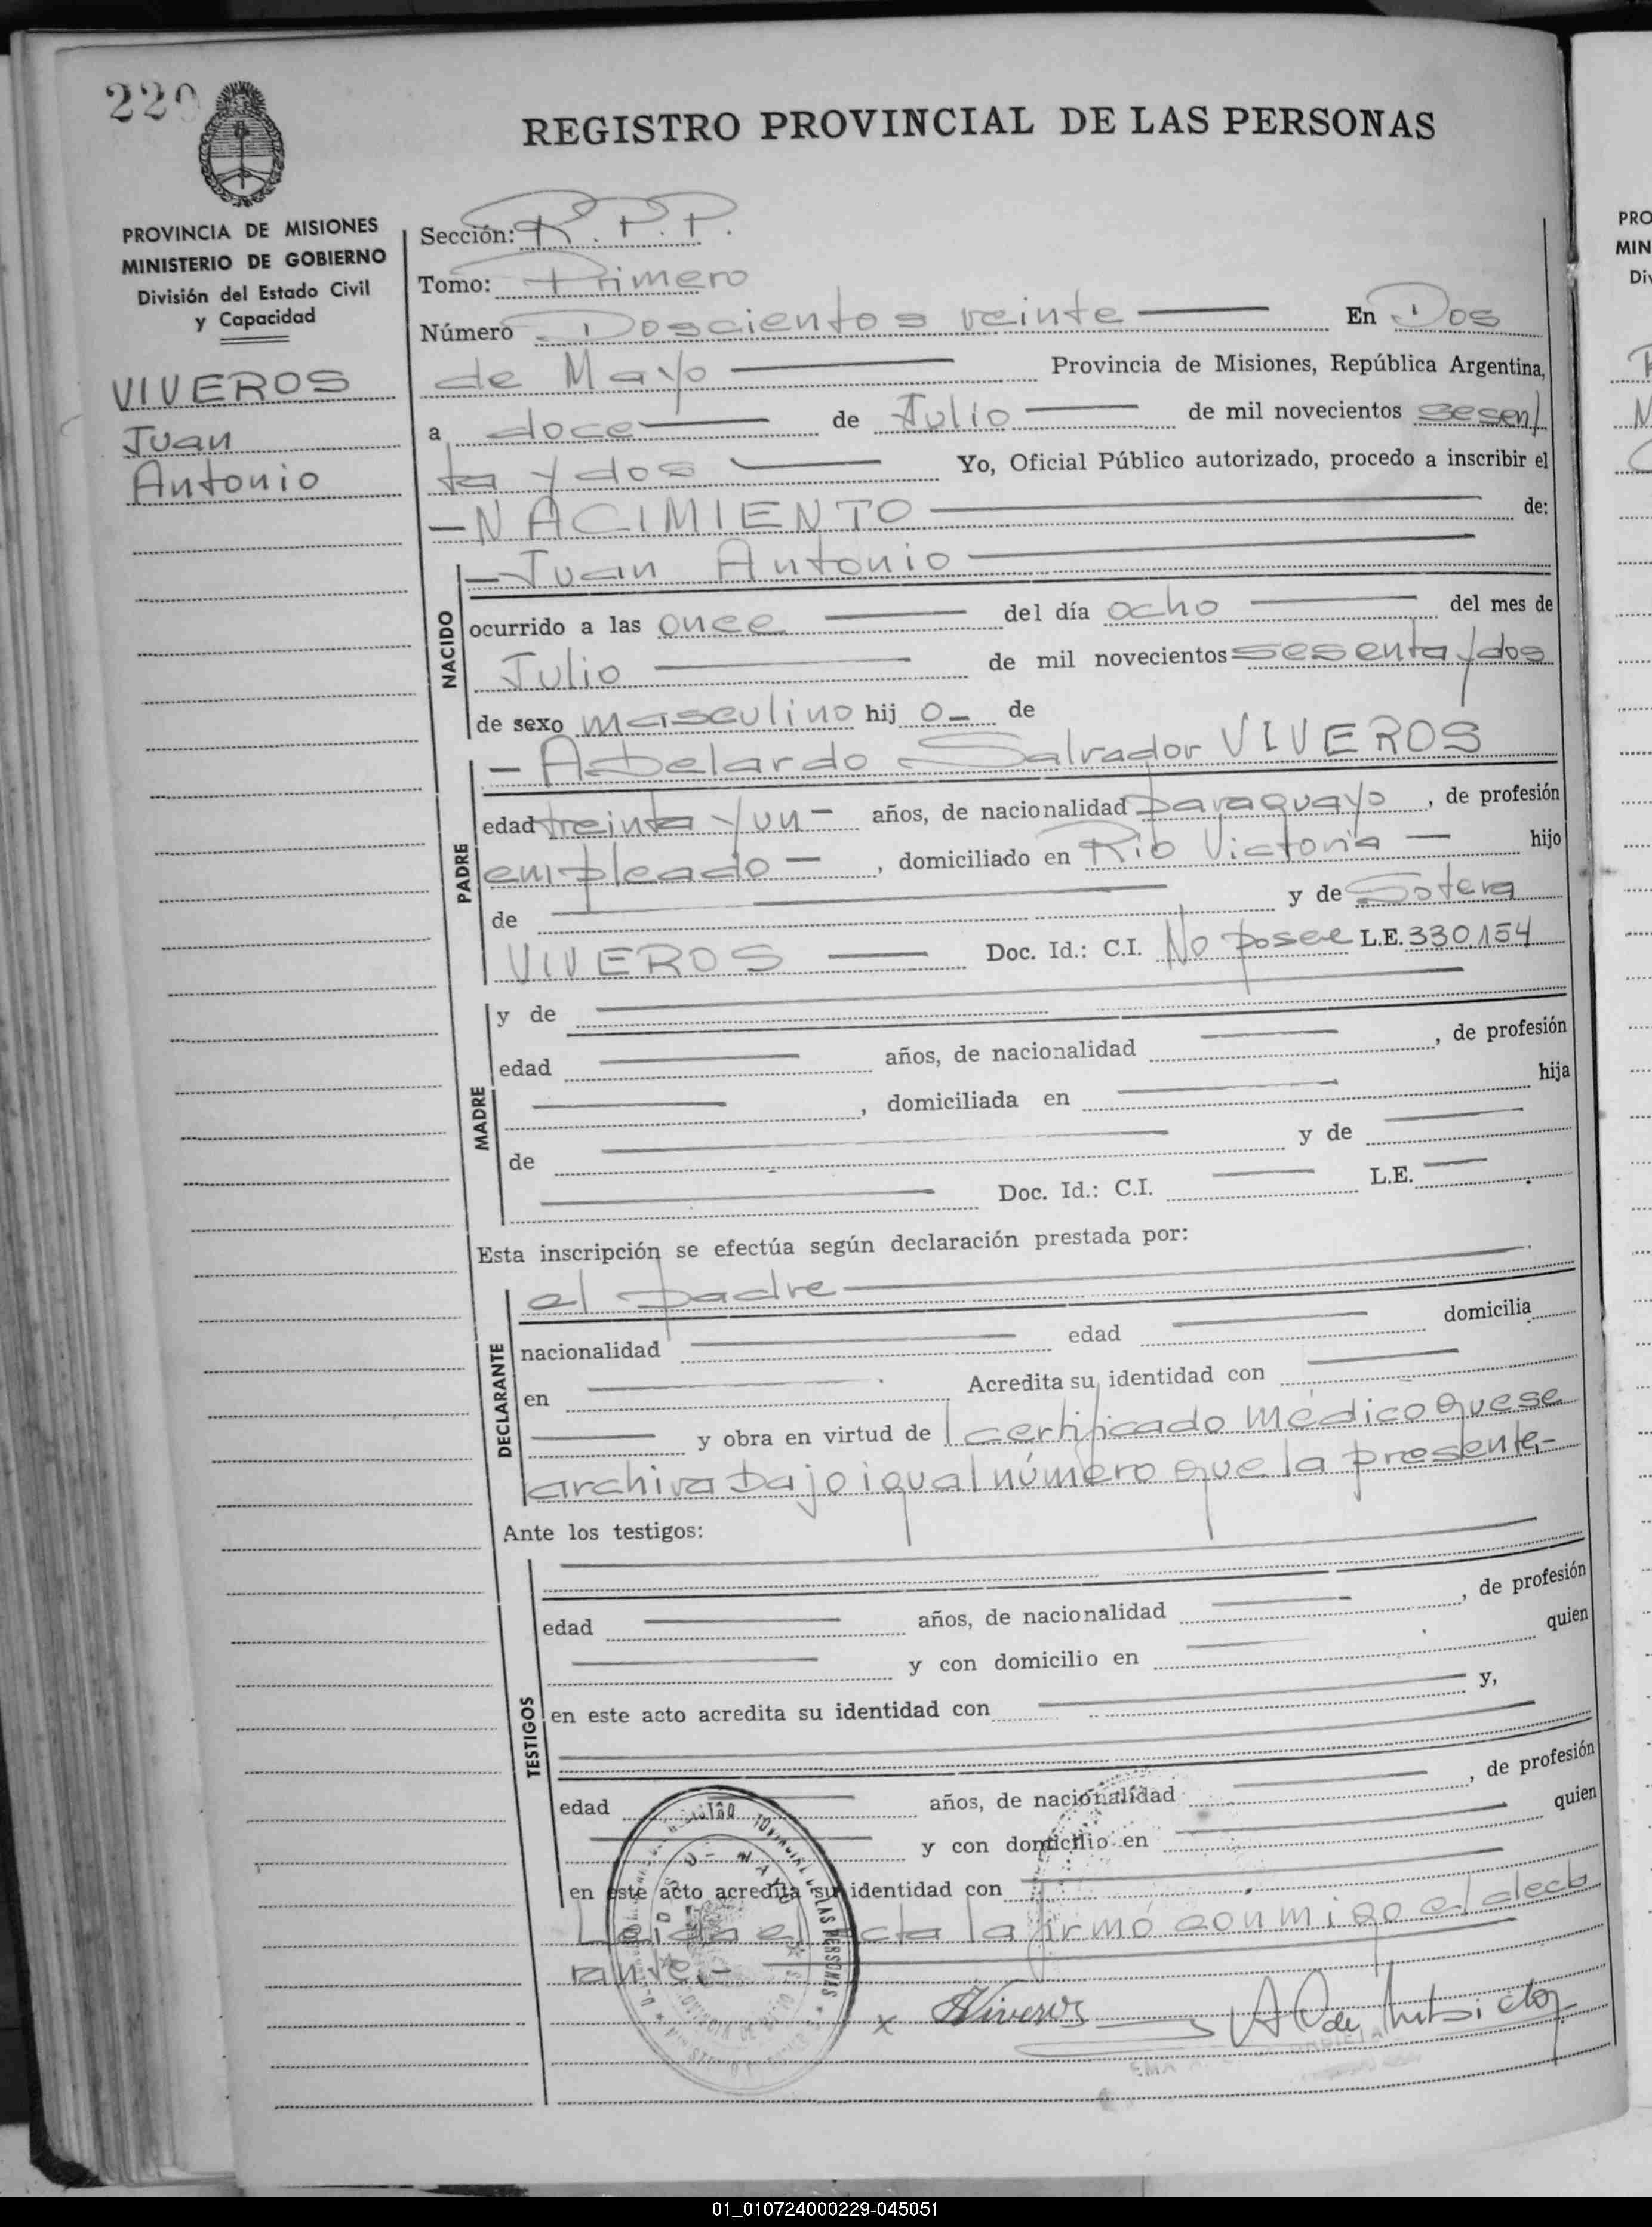 220
REGISTRO PROVINCIAL DE LAS PERSONAS
PROVINCIA DE MISIONES
MINISTERIO DE GOBIERNO
División del Estado Civil
y Capacidad
VIVEROS
Juan
Antonio
Sección: R.P.P.
Tomo: Primero
Número Doscientos veinte En Dos
de Mayo Provincia de Misiones, República Argentina,
a doce de Julio de mil novecientos sesen/
ta y dos Yo, Oficial Público autorizado, procedo a inscribir el
—NACIMIENTO de:
—Juan Antonio
NACIDO
ocurrido a las once del día ocho del mes de
Julio de mil novecientos sesenta y dos
de sexo masculino hij o— de
— Abelardo Salvador VIVEROS
PADRE
edad treinta y un — años, de nacionalidad paraguayo, de profesión
empleado —, domiciliado en Río Victoria — hijo
de y de Sotera
VIVEROS Doc. Id.: C.I. No posee L.E. 330.154
MADRE
y de
edad años, de nacionalidad , de profesión
, domiciliada en hija
de y de
Doc. Id.: C.I. L.E.
Esta inscripción se efectúa según declaración prestada por:
DECLARANTE
el padre
nacionalidad edad domicilia
en Acredita su identidad con
y obra en virtud de l certificado médico que se
archiva bajo igual número que la presente.-
Ante los testigos:
TESTIGOS
edad años, de nacionalidad , de profesión
y con domicilio en quien
en este acto acredita su identidad con y,
edad años, de nacionalidad , de profesión
y con domicilio en quien
en este acto acredita su identidad con
Leída el acta la firmó conmigo el decla
rante.-
x AViveros
PRO
MIN
Div
01_010724000229-045051